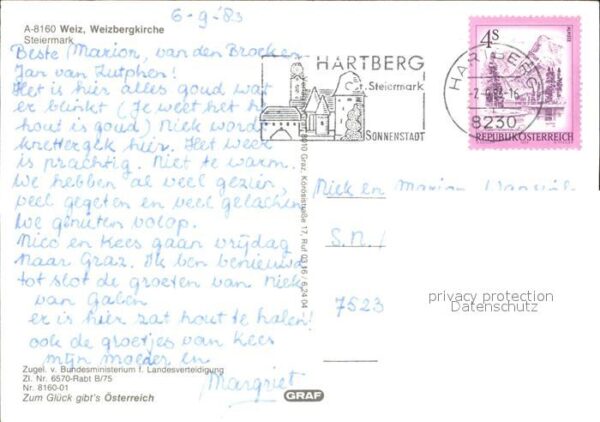 6-9-'83
A-8160 Weiz, Weizbergkirche
Steiermark
Beste Marion, van den Broek en
Jan van Zutphen!
Het is hier alles goud wat
er blinkt (Je weet het h
hout is goud) Niek word
knettergek hier. Het weer
is prachtig. Niet te warm.
We hebben al veel gezien,
veel gegeten en veel gelachen
We genieten volop.
Nico en Kees gaan vrijdag
naar Graz. Ik ben benieuwd
tot slot de groeten van Niek
van Galen
er is hier zat hout te halen!
ook de groetjes van Kees
mijn moeder en
Margriet
Zugel. v. Bundesministerium f. Landesverteidigung
Zl. Nr. 6570-Rabt B/75
Nr. 8160-01
Zum Glück gibt's Österreich
8010 Graz, Körösistraße 17, Ruf 03 16 / 6 24 04
GRAF
HARTBERG
Steiermark
SONNENSTADT
HARTBERG
8230
4S
REPUBLIK ÖSTERREICH
Niek en Marion
S.N./
7523
privacy protection
Datenschutz